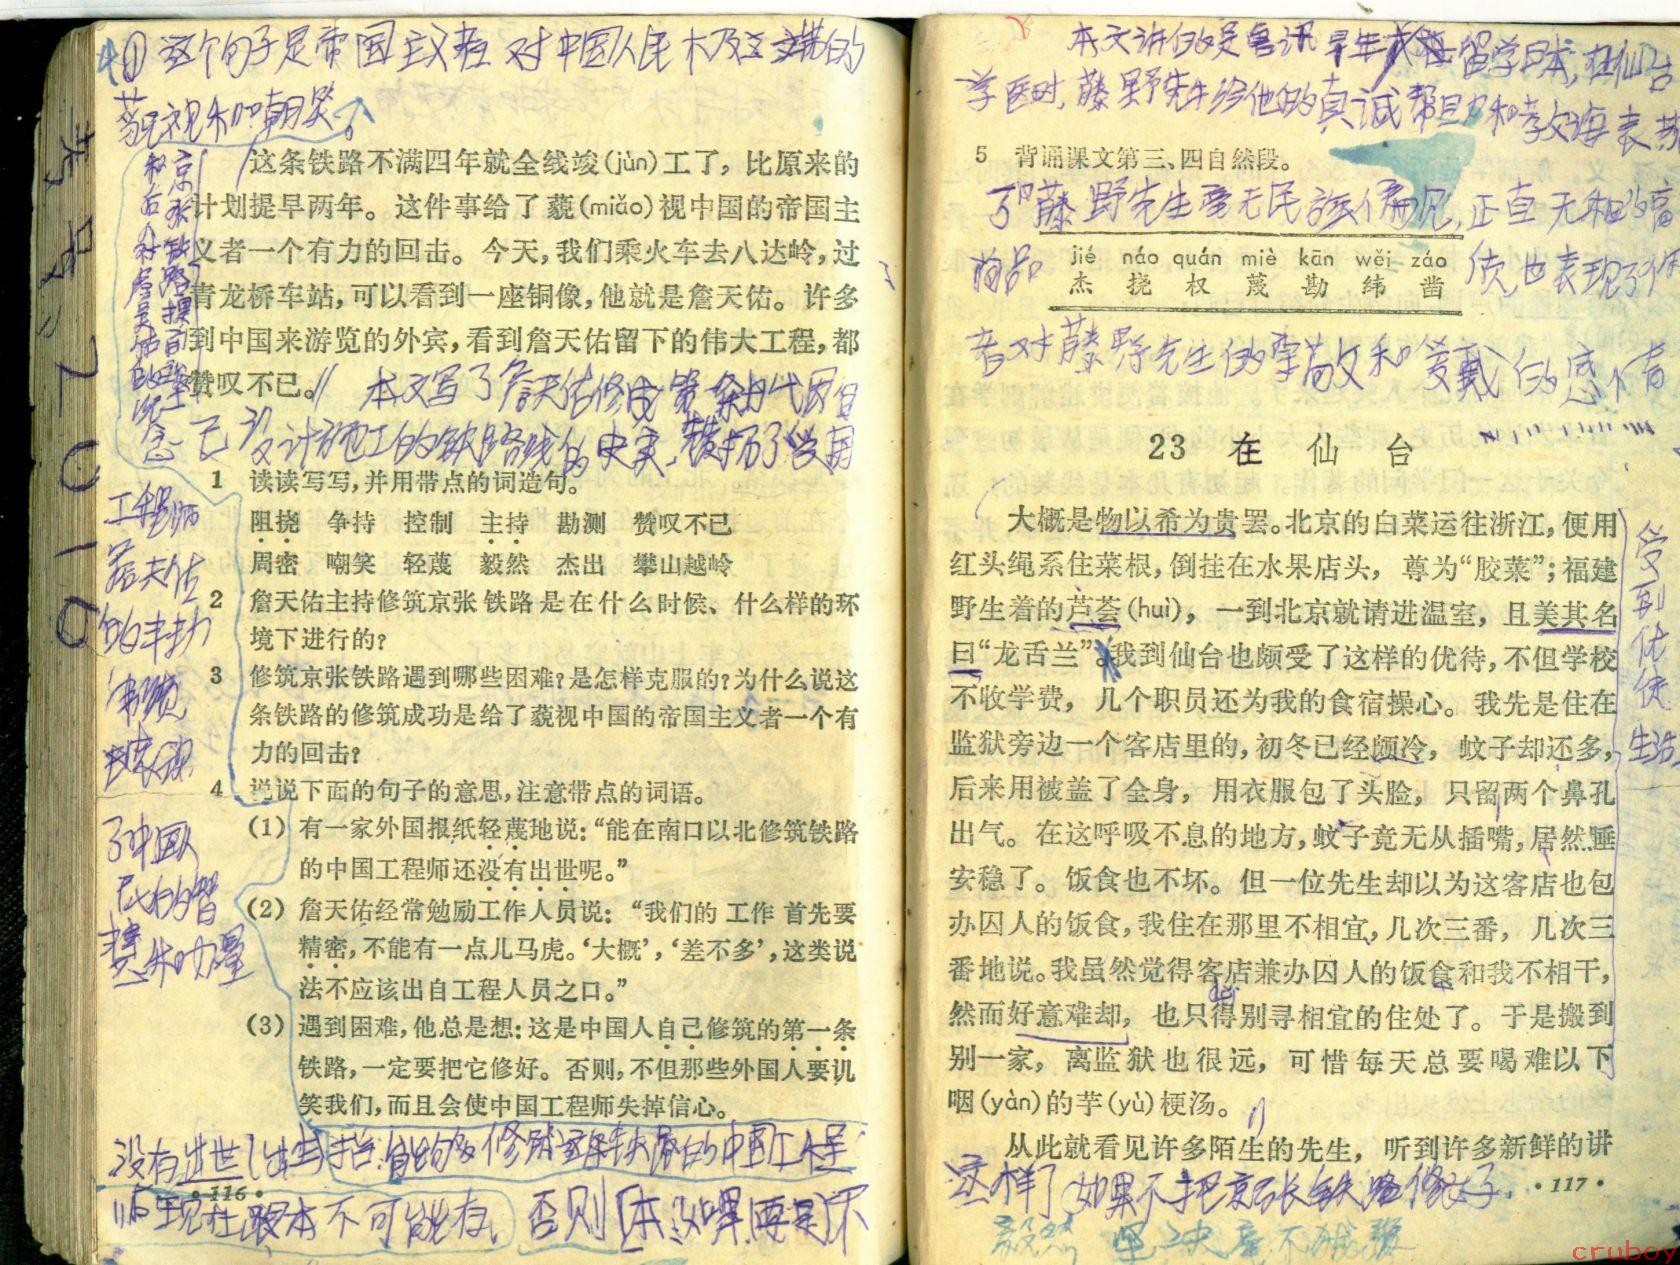 ① 这个句子是帝国主义者对中国人民
蔑视和嘲笑。
这条铁路不满四年就全线竣(jùn)工了，比原来的
计划提早两年。这件事给了藐(miǎo)视中国的帝国主
义者一个有力的回击。今天，我们乘火车去八达岭，过
青龙桥车站，可以看到一座铜像，他就是詹天佑。许多
到中国来游览的外宾，看到詹天佑留下的伟大工程，都
赞叹不已。
本文写了詹天佑修成第一条由中国自
己设计施工的铁路线的史实，
1 读读写写，并用带点的词造句。
阻挠 争持 控制 主持 勘测 赞叹不已
周密 嘲笑 轻蔑 毅然 杰出 攀山越岭
2 詹天佑主持修筑京张铁路是在什么时候、什么样的环
境下进行的？
3 修筑京张铁路遇到哪些困难？是怎样克服的？为什么说这
条铁路的修筑成功是给了藐视中国的帝国主义者一个有
力的回击？
4 说说下面的句子的意思，注意带点的词语。
(1) 有一家外国报纸轻蔑地说：“能在南口以北修筑铁路
的中国工程师还没有出世呢。”
(2) 詹天佑经常勉励工作人员说：“我们的工作首先要
精密，不能有一点儿马虎。‘大概’，‘差不多’，这类说
法不应该出自工程人员之口。”
(3) 遇到困难，他总是想：这是中国人自己修筑的第一条
铁路，一定要把它修好。否则，不但那些外国人要讥
笑我们，而且会使中国工程师失掉信心。
工程师
詹天佑
的丰功
了中国人
民的智
慧和力量
没有出世
现在根本不可能有。 否则
·116·
本文讲的是鲁迅早年留学日本，在仙台
学医时，藤野先生给他的真诚帮助和教诲表扬
5 背诵课文第三、四自然段。
了藤野先生毫无民族偏见，正直无私的高
jié náo quán miè kān wěi záo
杰 挠 权 蔑 勘 纬 凿
者对藤野先生的尊敬和爱戴的感情
23 在 仙 台
大概是物以希为贵罢。北京的白菜运往浙江，便用
红头绳系住菜根，倒挂在水果店头，尊为“胶菜”；福建
野生着的芦荟(huì)，一到北京就请进温室，且美其名
曰“龙舌兰”。我到仙台也颇受了这样的优待，不但学校
不收学费，几个职员还为我的食宿操心。我先是住在
监狱旁边一个客店里的，初冬已经颇冷，蚊子却还多，
后来用被盖了全身，用衣服包了头脸，只留两个鼻孔
出气。在这呼吸不息的地方，蚊子竟无从插嘴，居然睡
安稳了。饭食也不坏。但一位先生却以为这客店也包
办囚人的饭食，我住在那里不相宜，几次三番，几次三
番地说。我虽然觉得客店兼办囚人的饭食和我不相干，
děi
然而好意难却，也只得别寻相宜的住处了。于是搬到
别一家，离监狱也很远，可惜每天总要喝难以下
咽(yàn)的芋(yù)梗汤。
从此就看见许多陌生的先生，听到许多新鲜的讲
受
到
优
待
生活
这样了 如果不把京张铁路修好
·117·
毅然 坚决毫不犹豫
cruboy